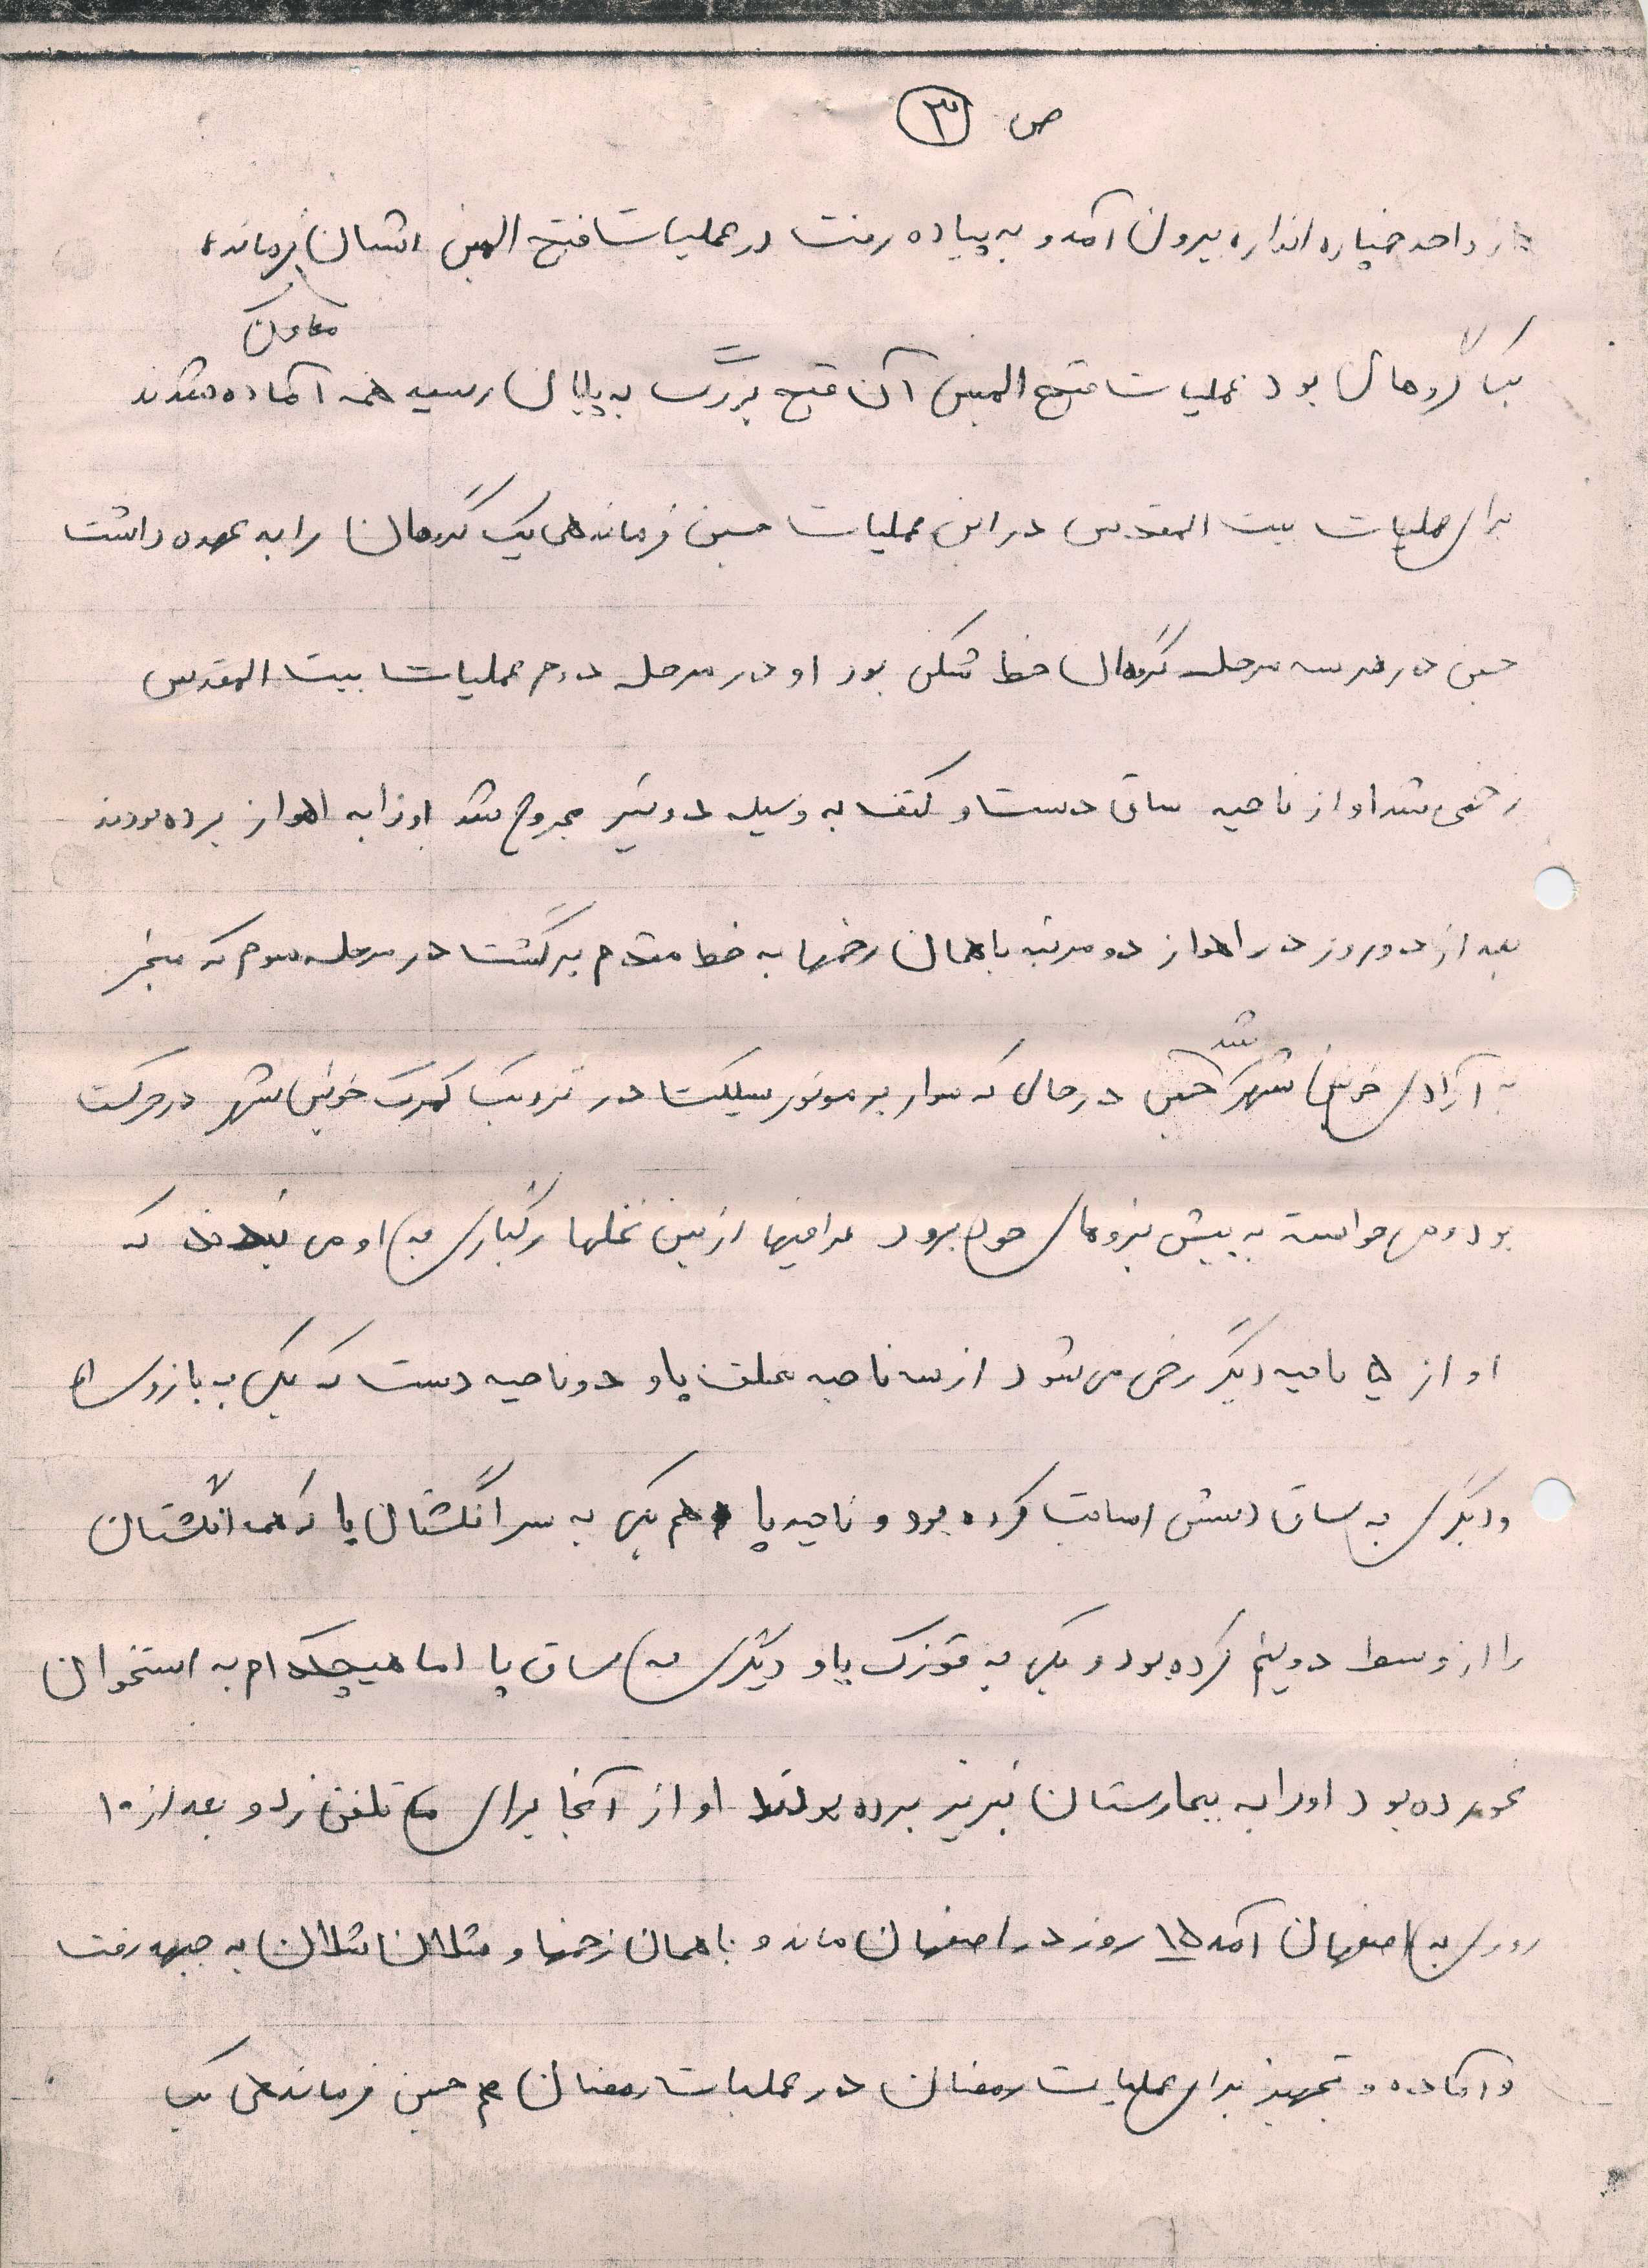 ص ۳
از واحد خمپاره انداز بیرون آمد و به پیاده رفت در عملیات فتح المبین ایشان فرمانده
معاون
یک گروهان بود عملیات فتح المبین آن فتح بزرگ به پایان رسید همه آماده شدند
برای عملیات بیت المقدس در این عملیات حسین فرماندهی یک گروهان را به عهده داشت
حسین در هر سه مرحله گروهان خط شکن بود او در مرحله دوم عملیات بیت المقدس
زخمی شد او از ناحیه ساق دست و کتف به وسیله دو تیر مجروح شد او را به اهواز برده بودند
بعد از دو روز در اهواز دو مرتبه با همان زخمها به خط مقدم برگشت در مرحله سوم که منجر
شد
به آزادی خونین شهر حسین در حالی که سوار بر موتور سیکلت در نزدیک گمرک خونین شهر در حرکت
بود و می خواست به پیش نیروهای خود برود عراقیها از بین نخلها رگباری به او می بندند که
او از ۵ ناحیه دیگر زخمی می شود از سه ناحیه مختلف پا و دو ناحیه دست که یکی به بازوی او
و دیگری به ساق دستش اصابت کرده بود و ناحیه پا هم یکی به سر انگشتان پا که انگشتان
را از وسط دو نیم کرده بود و یکی به قوزک پا و دیگری به ساق پا اما هیچکدام به استخوان
نخورده بود او را به بیمارستان تبریز برده بودند او از آنجا برای ما تلفن زد و بعد از ۱۰
روزی به اصفهان آمد ۱۵ روز در اصفهان ماند و با همان زخمها و شلان شلان به جبهه رفت
و آماده و تجهیز برای عملیات رمضان در عملیات رمضان هم حسین فرماندهی یک